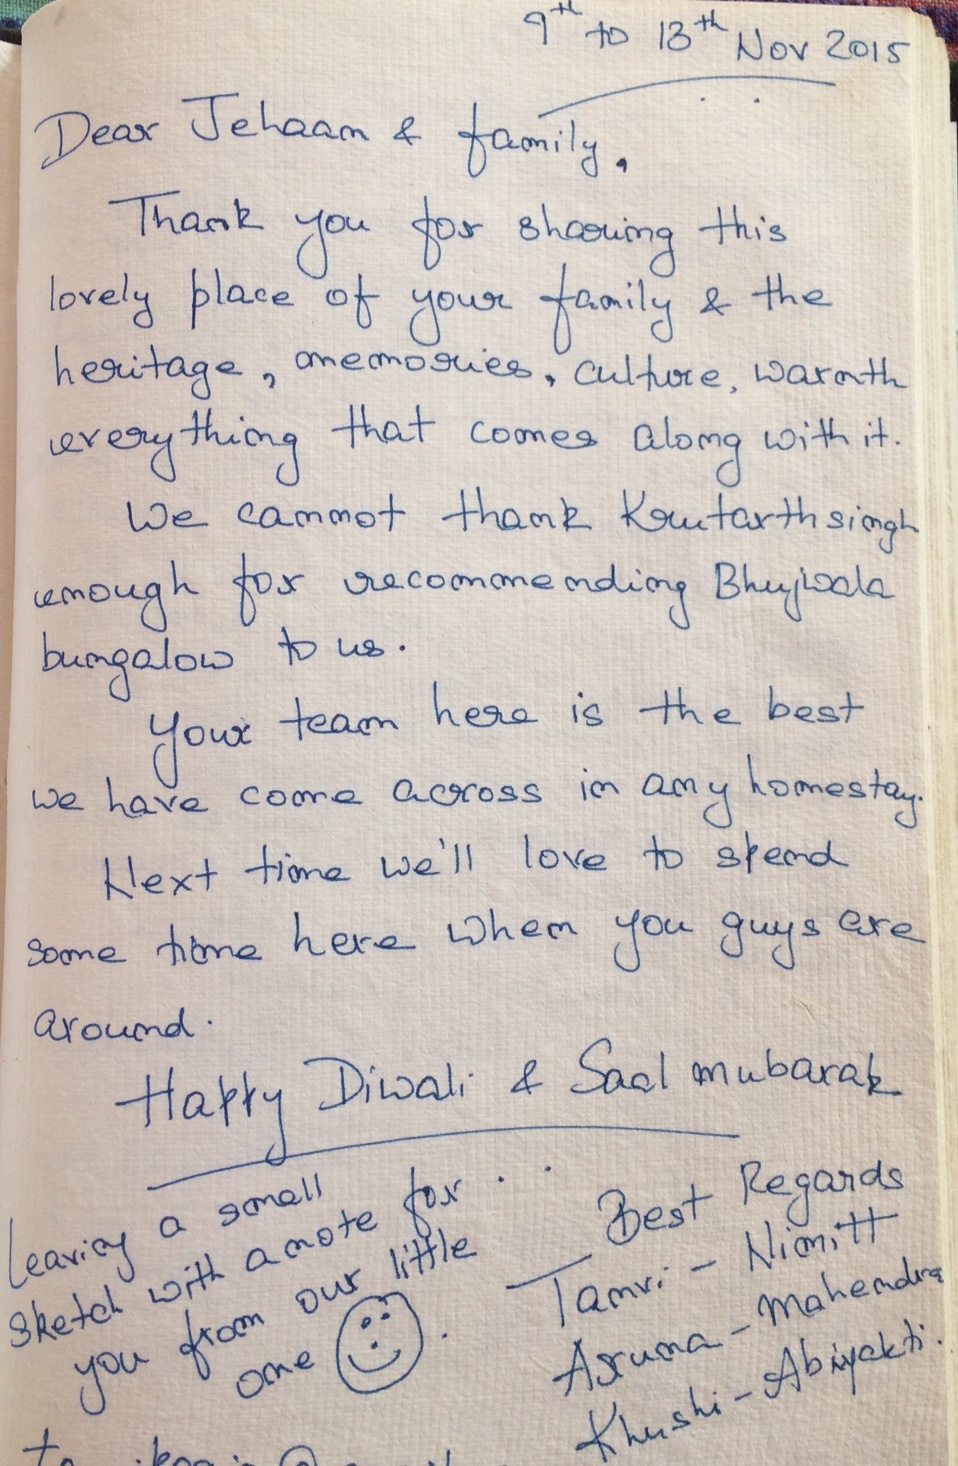 9th to 13th Nov 2015
Dear Jehaan & family,
Thank you for sharing this
lovely place of your family & the
heritage, memories, culture, warmth
everything that comes along with it.
We cannot thank Krutarthsingh
enough for recommending Bhujwala
bungalow to us.
Your team here is the best
we have come across in any homestay.
Next time we'll love to spend
some time here when you guys are
around.
Happy Diwali & Saal mubarak
Leaving a small
sketch with a note for
you from our little
one
Best Regards
Tanvi - Nimitt
Aruna - Mahendra
Khushi - Abiyakti.